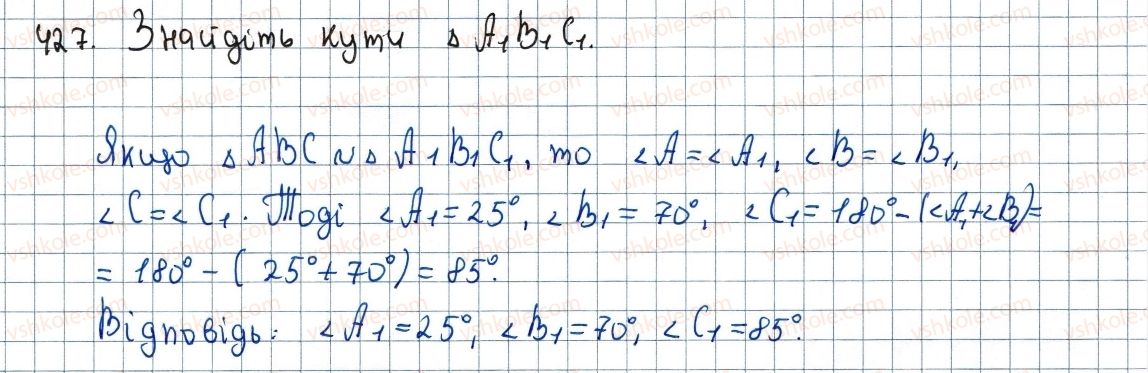 427. Знайдіть кути △ A₁B₁C₁.
Якщо △ ABC ∾ △ A₁B₁C₁, то ∠A = ∠A₁, ∠B = ∠B₁,
∠C = ∠C₁. Тоді ∠A₁ = 25°, ∠B₁ = 70°, ∠C₁ = 180° - (∠A₁ + ∠B₁) =
= 180° - (25° + 70°) = 85°.
Відповідь: ∠A₁ = 25°, ∠B₁ = 70°, ∠C₁ = 85°.